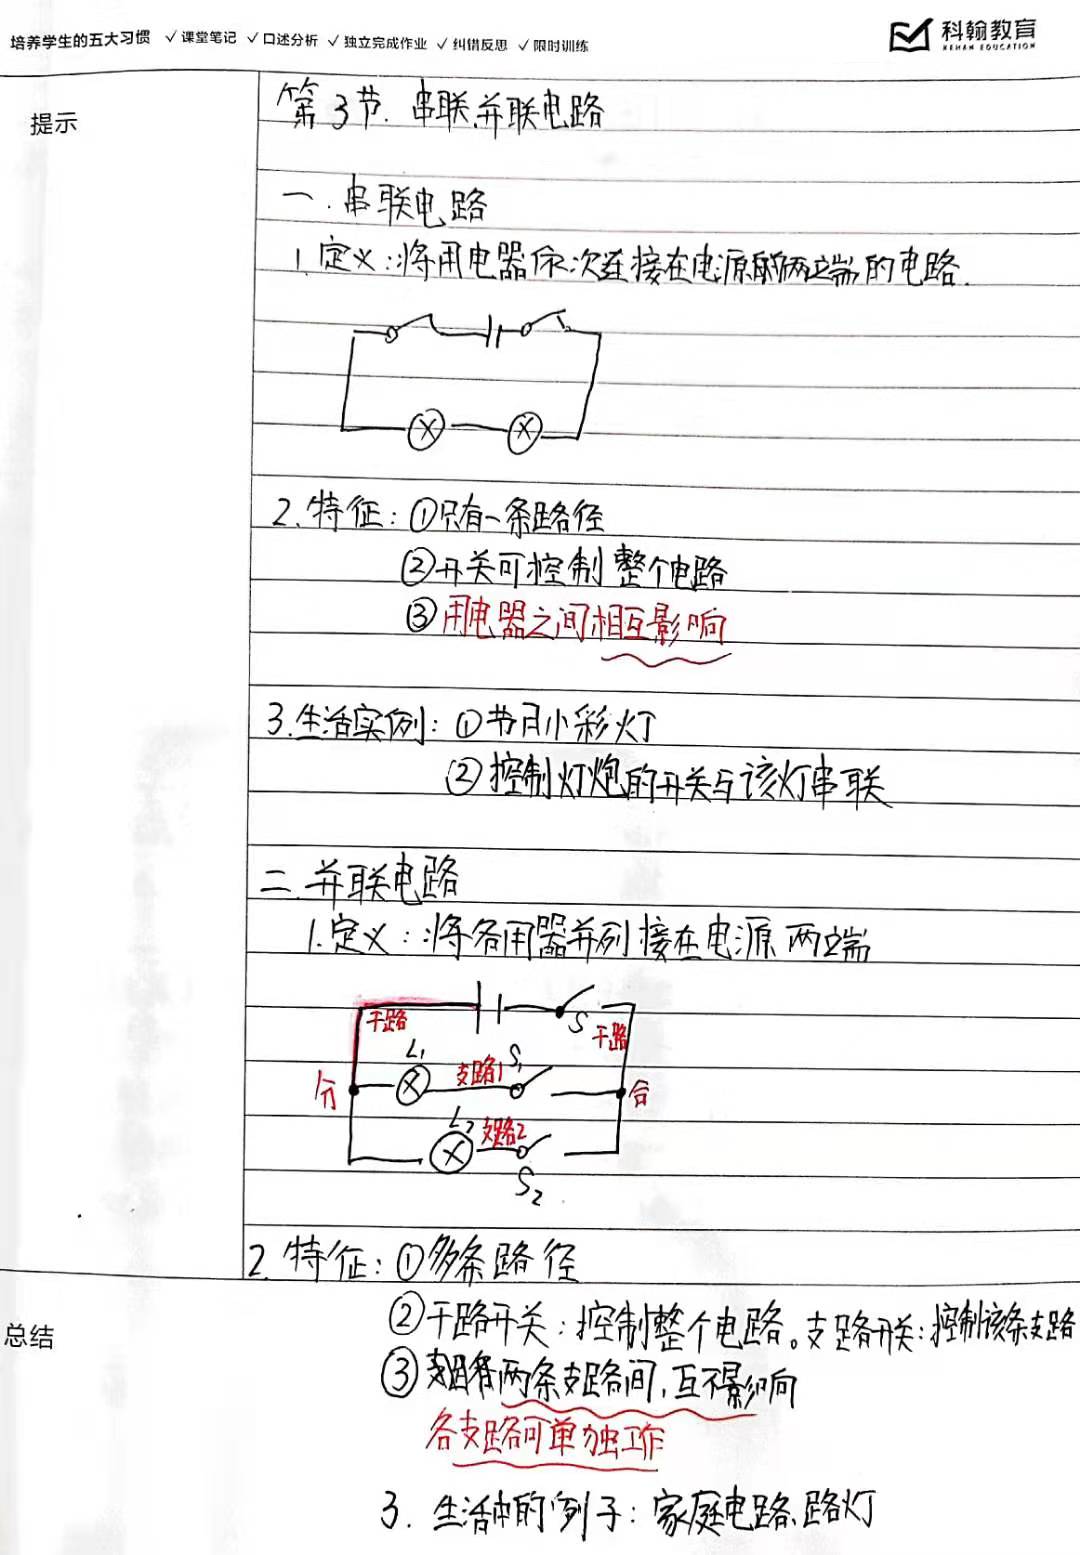 培养学生的五大习惯 ✓课堂笔记 ✓口述分析 ✓独立完成作业 ✓纠错反思 ✓限时训练
科翰教育
KEHAN EDUCATION
提示
第3节. 串联并联电路
一.串联电路
1.定义:将用电器依次连接在电源的两端的电路.
2.特征:①只有一条路径
②开关可控制整个电路
③用电器之间相互影响
3.生活实例:①节日小彩灯
②控制灯炮的开关与该灯串联
二.并联电路
1.定义:将各用器并列接在电源两端
干路 S 干路
L₁ 支路1 S₁
分 合
L₂ 支路2
S₂
2.特征:①多条路径
总结
②干路开关:控制整个电路。支路开关:控制该条支路
③两条支路间,互不影响
各支路可单独工作
3.生活中的例子:家庭电路、路灯